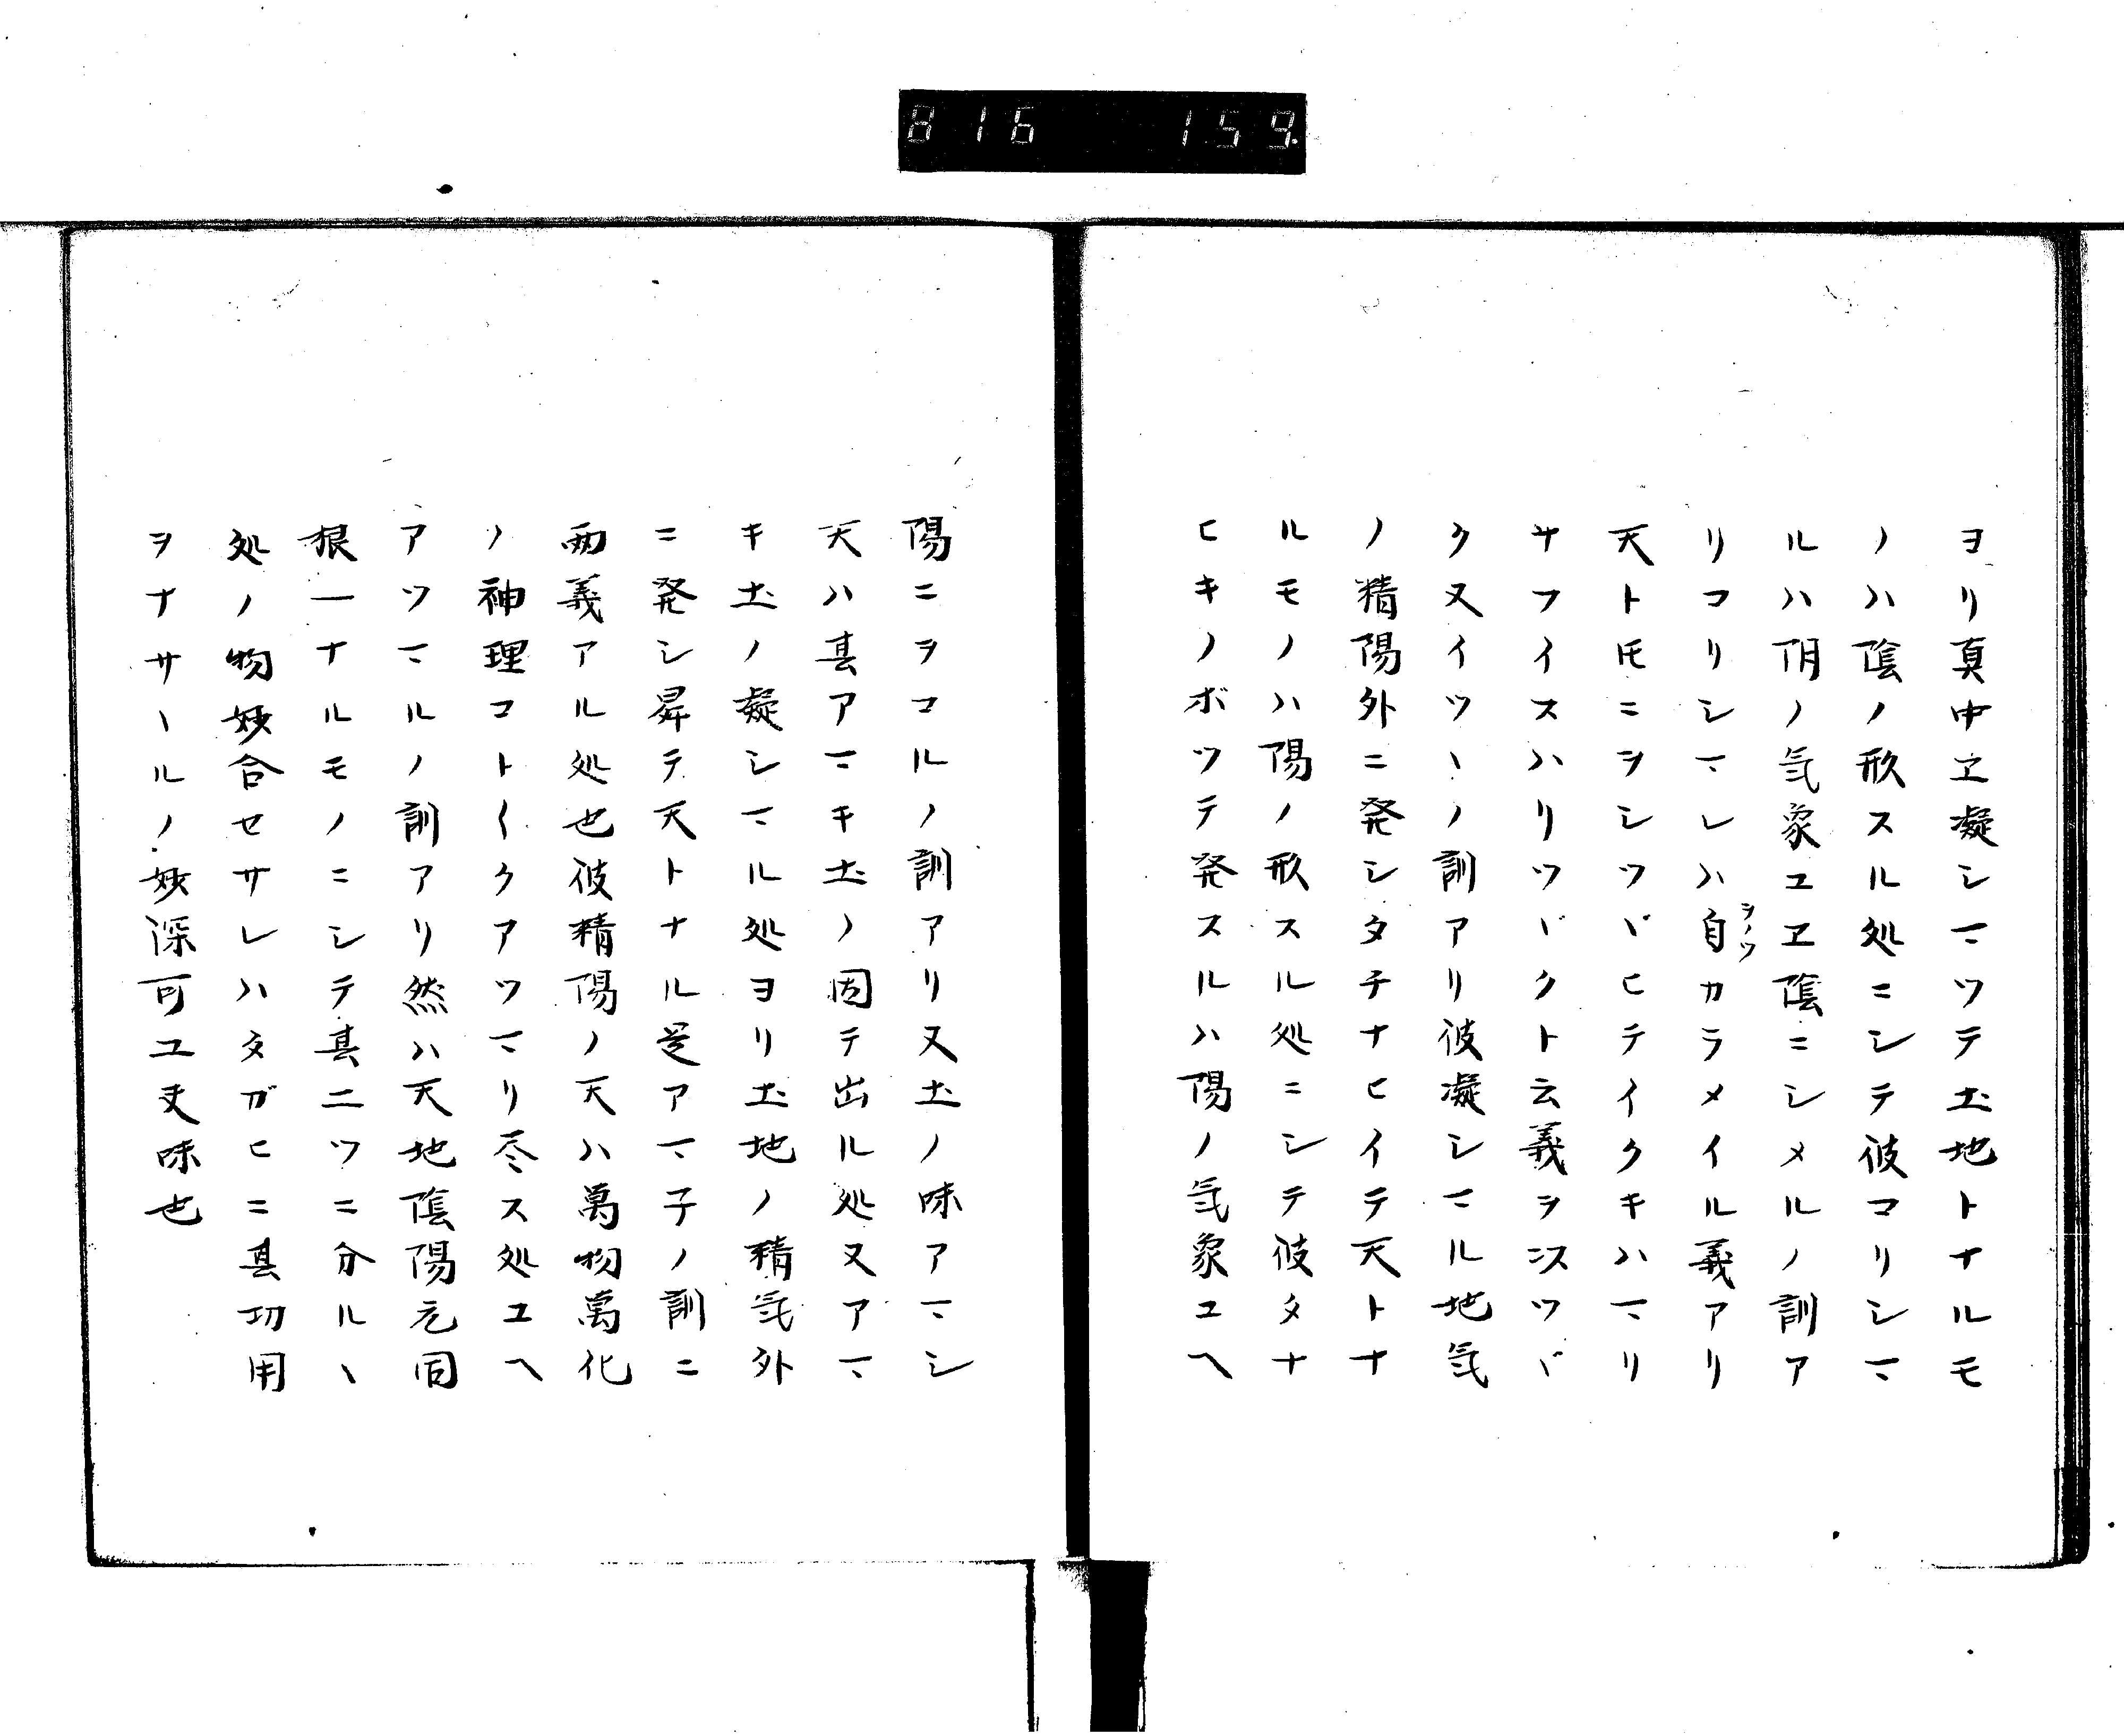 816 159.
ヨリ真中ヱ凝シマツテ土地トナルモ
ノハ陰ノ形スル処ニシテ彼コリシマ
ルハ阴ノ気象ユヱ陰ニシメルノ訓ア
リコリシマレハ自カラメイル義アリ
シノツ
天トモニヲシツヾヒテイクキハマリ
サフイスハリツヾクト云義ヲ以ツヾ
ク又イツヽノ訓アリ彼凝シマル地気
ノ精陽外ニ発シタチナヒイテ天トナ
ルモノハ陽ノ形スル処ニシテ彼タナ
ヒキノボツテ発スルハ陽ノ気象ユヘ
陽ニヲコルノ訓アリ又土ノ味アマシ
天ハ其アマキ土ノ固テ出ル処又アマ
キ土ノ凝シマル処ヨリ土地ノ精気外
ニ発シ昇テ天トナル是アマ子ノ訓ニ
両義アル処也彼精陽ノ天ハ萬物萬化
ノ神理コトイクアツマリ尽ス処ユヘ
アツマルノ訓アリ然ハ天地陰陽元同
根一ナルモノニシテ其二ツニ分ルヽ
処ノ物妙合セサレハタガヒニ其功用
ヲナサヽルノ妙深可ユ叐味也